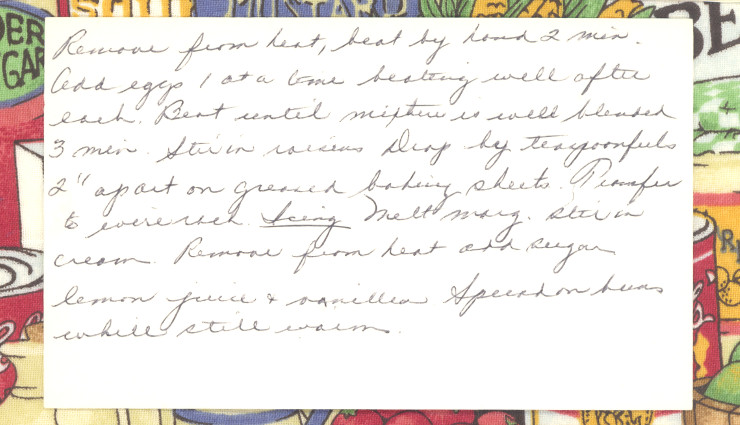 DER
GAR
MUSTARD
BE
Remove from heat, beat by hand 2 min.
Add eggs 1 at a time beating well after
each. Beat until mixture is well blended
3 min. Stir in raisins Drop by teaspoonfuls
2" apart on greased baking sheets. Transfer
to wire rack. Icing Melt marg. stir in
cream. Remove from heat add sugar
lemon juice & vanilla Spread on buns
while still warm.